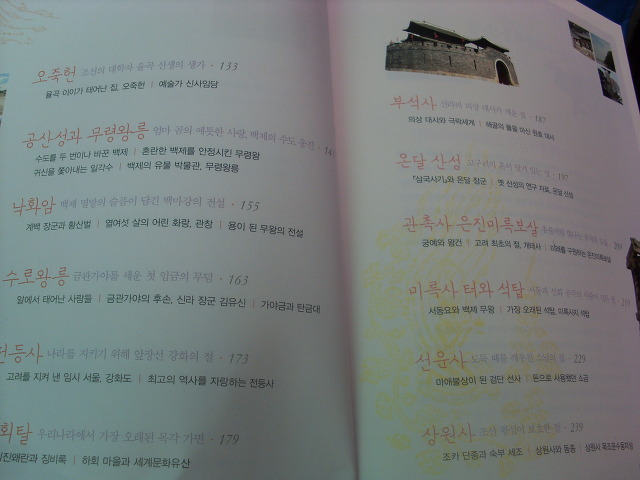 오죽헌 조선의 대학자 율곡 선생의 생가 · 133
율곡 이이가 태어난 집, 오죽헌 | 예술가 신사임당
공산성과 무령왕릉 엄마 곰의 애틋한 사랑, 백제의 수도 웅진
수도를 두 번이나 바꾼 백제 | 혼란한 백제를 안정시킨 무령왕
귀신을 쫓아내는 일각수 | 백제의 유물 박물관, 무령왕릉
낙화암 백제 멸망의 슬픔이 담긴 백마강의 전설 · 155
계백 장군과 황산벌 | 열여섯 살의 어린 화랑, 관창 | 용이 된 무왕의 전설
수로왕릉 금관가야를 세운 첫 임금의 무덤 · 163
알에서 태어난 사람들 | 금관가야의 후손, 신라 장군 김유신 | 가야금과 탄금대
전등사 나라를 지키기 위해 앞장선 강화의 절 · 173
고려를 지켜 낸 임시 서울, 강화도 | 최고의 역사를 자랑하는 전등사
회탈 우리나라에서 가장 오래된 목각 가면 · 179
진왜란과 징비록 | 하회 마을과 세계문화유산
부석사 신라의 의상 대사가 세운 절 · 187
의상 대사와 극락세계 | 해골의 물을 마신 원효 대사
온달 산성 고구려의 혼이 담겨 있는 성 · 197
『삼국사기』와 온달 장군 | 옛 산성의 연구 자료, 온달 산성
관촉사 은진미륵보살
궁예와 왕건 | 고려 최초의 절, 개태사 | 미래를 구원하는 은진미륵보살
미륵사 터와 석탑
서동요와 백제 무왕 | 가장 오래된 석탑, 미륵사지 석탑
선운사 도둑 떼를 깨우친 소금의 절 · 229
마애불상이 된 검단 선사 | 돈으로 사용했던 소금
상원사 조선 왕실이 보호한 절 · 239
조카 단종과 숙부 세조 | 상원사와 동종 | 상원사 목조문수동자상